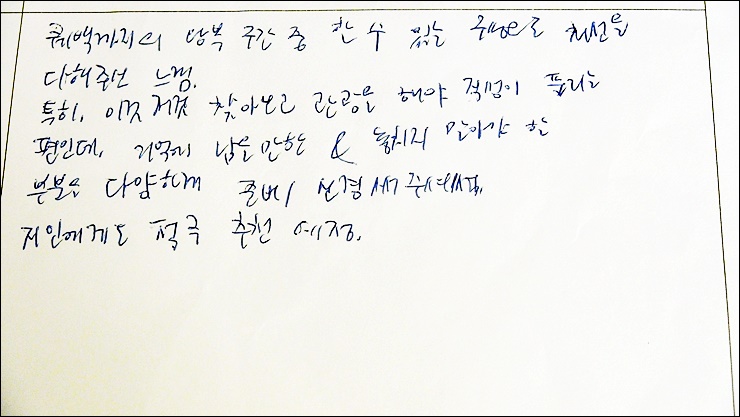 퀘벡까지의 왕복 구간 중 할 수 있는 최선을
다해주신 느낌.
특히, 이것 저것 찾아보고 관광을 해야 직성이 풀리는
편인데, 기억에 남을 만한 & 놓치지 말아야 할
부분을 다양하게 준비 신경써주셔서
지인에게도 적극 추천 예정.